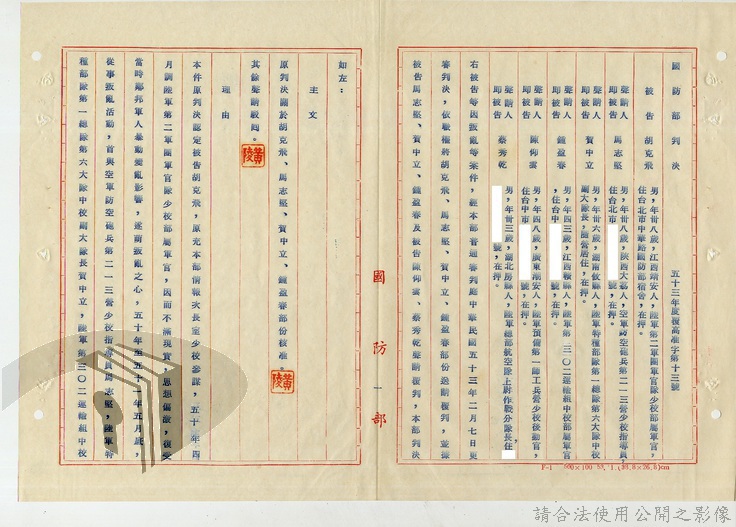 國防部判決
五十三年度覆高准字第十三號
被告 胡克飛 男，年卅八歲，江西靖安人，陸軍第二軍團軍官隊少校部屬軍官，
住台北市中華路國防部宿舍，在押。
被告 馬志堅 男，年卅八歲，陝西大荔人，空軍防空砲兵第二一三營少校指導員，
住台北市 號，在押。
聲請人
即被告 賀中立 男，年卅六歲，湖南攸縣人，陸軍特種部隊第一總隊第六大隊中校
副大隊長，隨營居住，在押。
聲請人
即被告 鍾盈春 男，年四三歲，江西贛縣人，陸軍第三〇二運輸組中校部屬軍官
，住台中 號，在押。
聲請人
即被告 陳仰雲 男，年四八歲，廣東潮安人，陸軍預備第一師工兵營少校後勤官，
住台中市 號，在押。
聲請人
即被告 蔡秀乾 男，年卅三歲，湖北房縣人，陸軍總部航空隊上尉作戰分隊長住
號，在押。
右被告等因叛亂等案件，經本部普通審判庭中華民國五十三年二月七日更
審判決，依職權將胡克飛、馬志堅、賀中立、鍾盈春部份送請覆判，並據
被告馬志堅、賀中立、鍾盈春及被告陳仰雲、蔡秀乾聲請覆判，本部判決
國防部
如左：
主文
原判決關於胡克飛、馬志堅、賀中立、鍾盈春部份核准。
其餘聲請駁回。
理由
本件原判決認定被告胡克飛，原充本部情報次長室少校參謀，五十年四
月調陸軍第二軍團軍官隊少校部屬軍官，因而不滿現實，思想偏激，復受
當時鄰邦軍人暴動變亂影響，遂萌叛亂之心，五十年至五十一年五月底，
從事叛亂活動，首與空軍防空砲兵第二一三營少校指導員馬志堅，陸軍特
種部隊第一總隊第六大隊中校副大隊長賀中立，陸軍第三〇二運輸組中校
請合法使用公開之影像